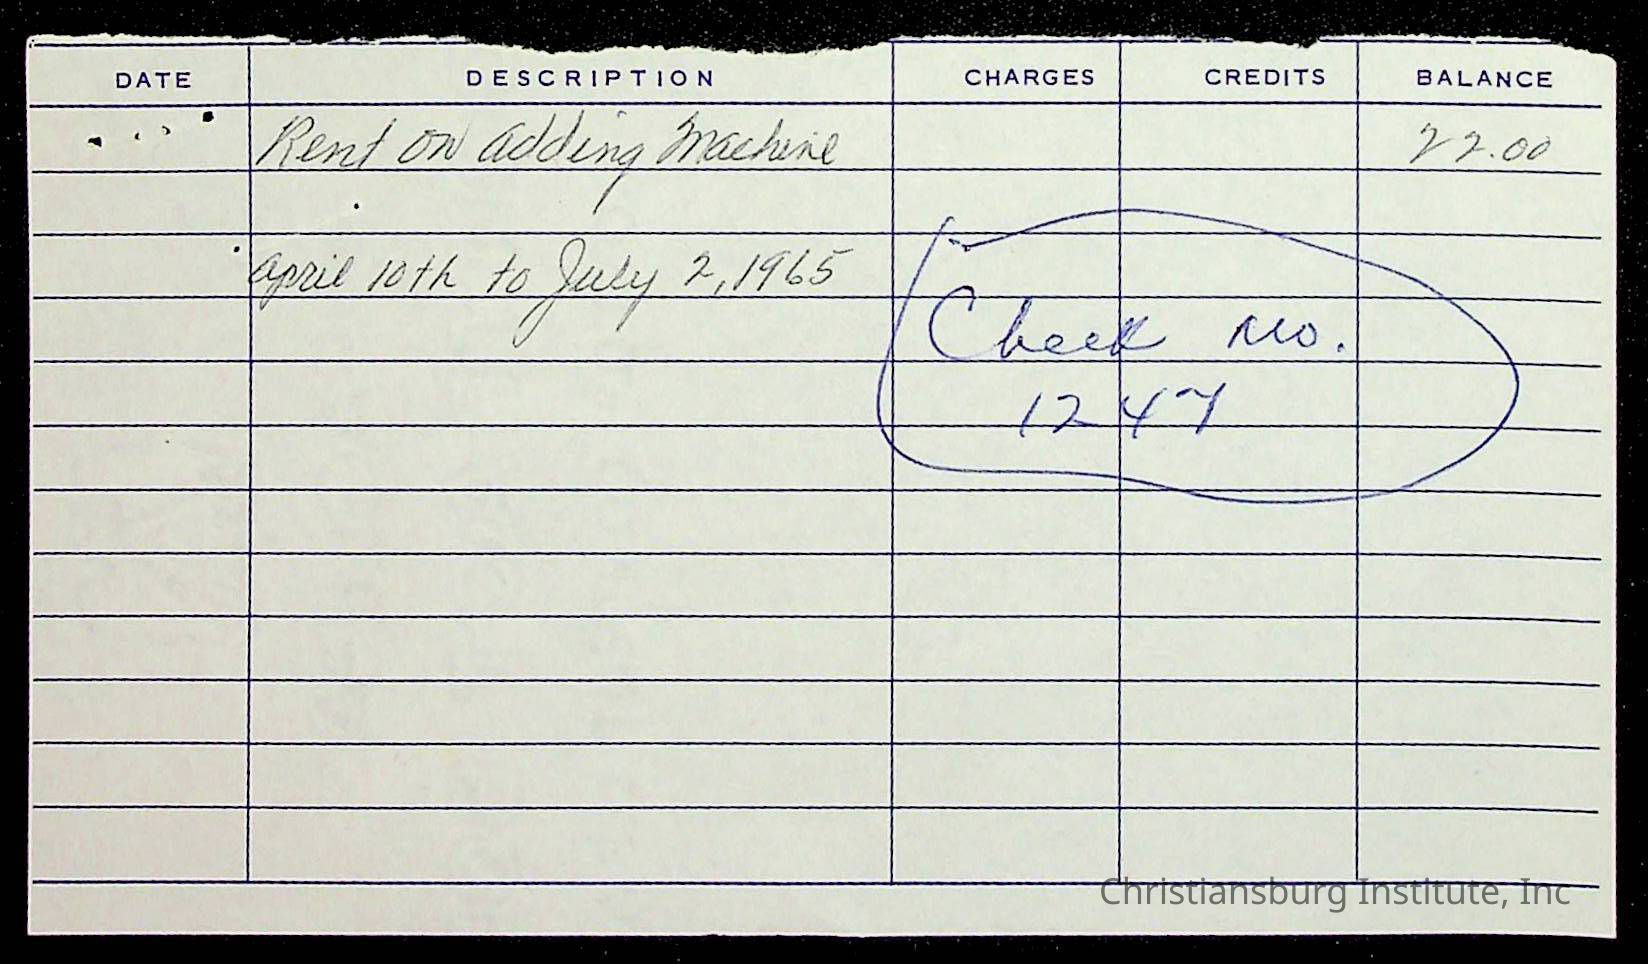 DATE DESCRIPTION CHARGES CREDITS BALANCE
Rent on adding Machine 22.00
april 10th to July 2, 1965
Check No.
1247
Christiansburg Institute, Inc